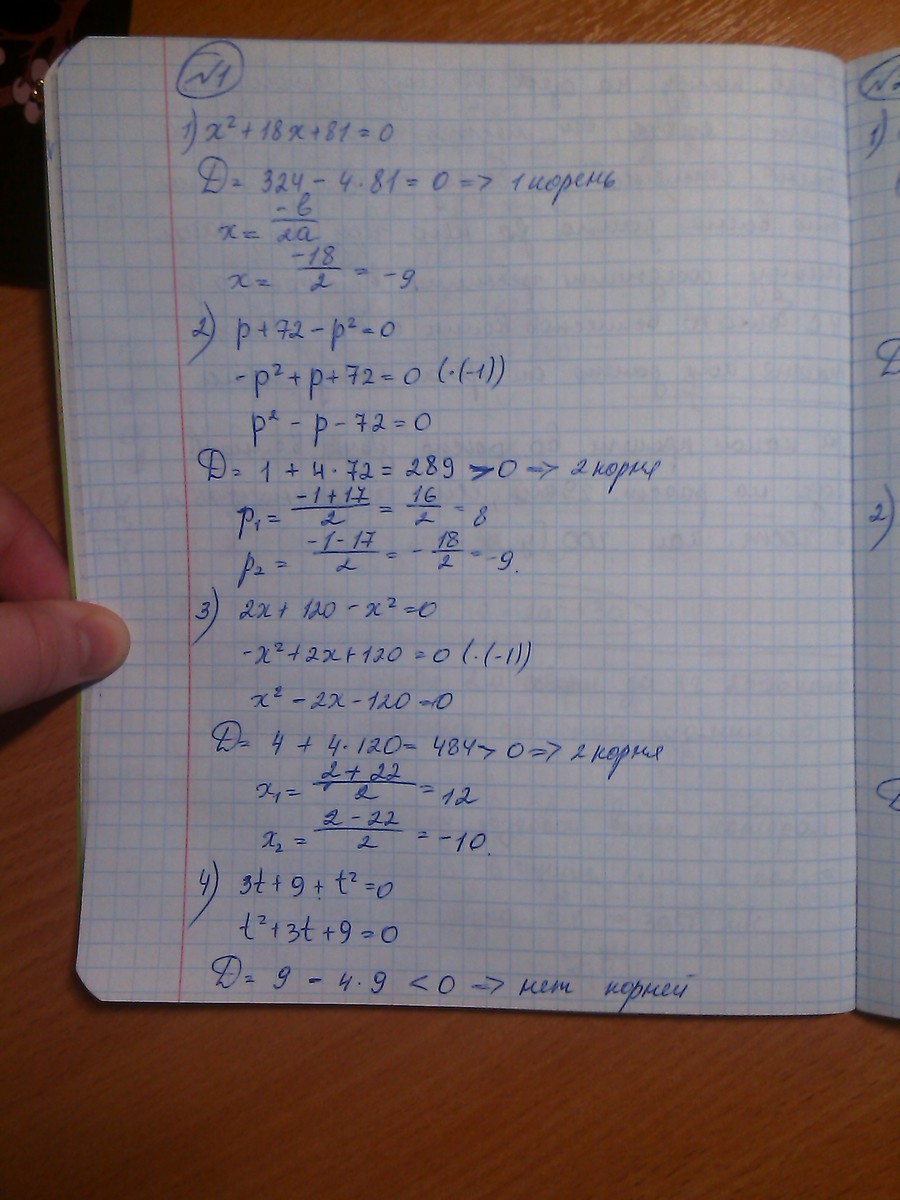 №1
1) x² + 18x + 81 = 0
D = 324 - 4·81 = 0 => 1 корень
x = -b/2a
x = -18/2 = -9
2) p + 72 - p² = 0
-p² + p + 72 = 0 (·(-1))
p² - p - 72 = 0
D = 1 + 4·72 = 289 > 0 => 2 корня
p₁ = (-1+17)/2 = 16/2 = 8
p₂ = (-1-17)/2 = -18/2 = -9.
3) 2x + 120 - x² = 0
-x² + 2x + 120 = 0 (·(-1))
x² - 2x - 120 = 0
D = 4 + 4·120 = 484 > 0 => 2 корня
x₁ = (2 + 22)/2 = 12
x₂ = (2 - 22)/2 = -10.
4) 3t + 9 + t² = 0
t² + 3t + 9 = 0
D = 9 - 4·9 < 0 => нет корней
1)
D
2)
D